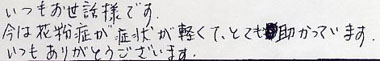 いつもお世話様です.
今は花粉症が症状が軽くて、とても助かっています.
いつもありがとうございます.